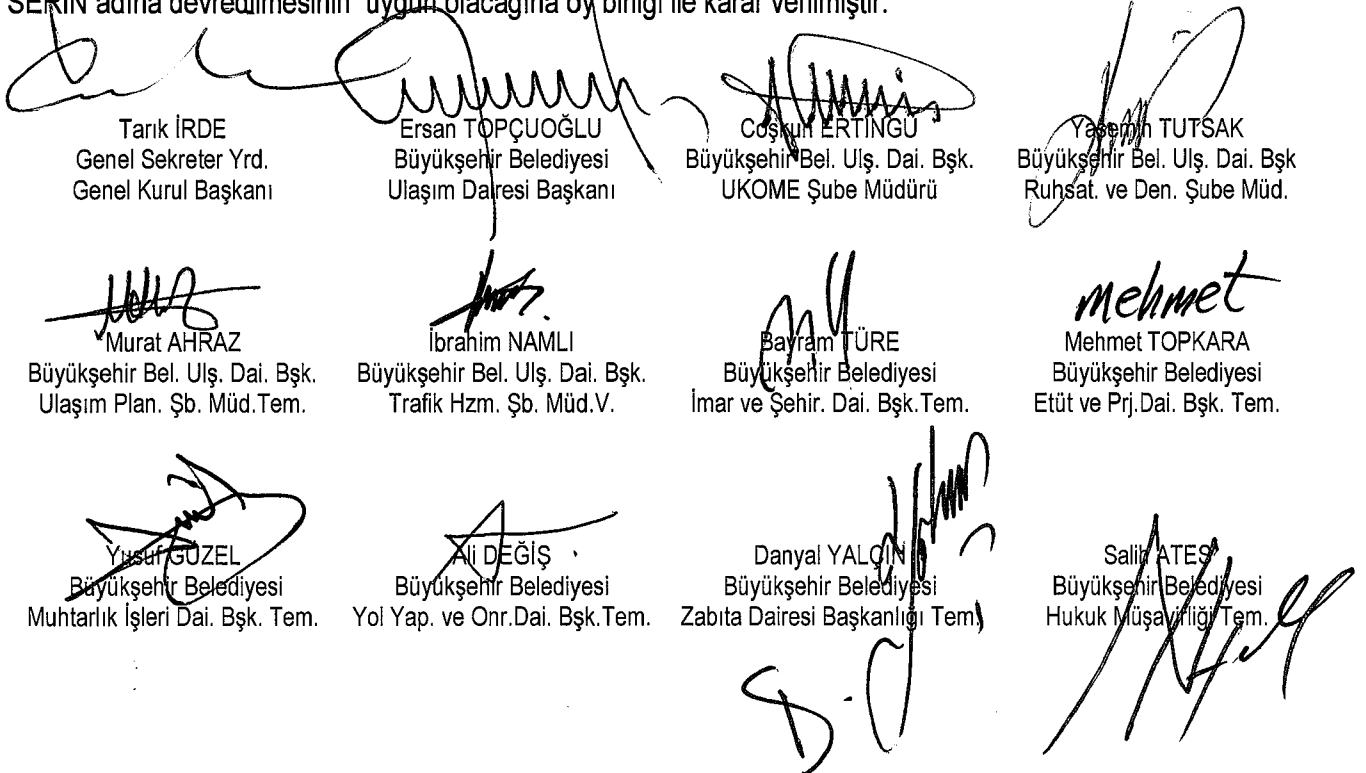 SERİN adına devredilmesinin uygun olacağına oy birliği ile karar verilmiştir.
Tarık İRDE
Genel Sekreter Yrd.
Genel Kurul Başkanı
Ersan TOPÇUOĞLU
Büyükşehir Belediyesi
Ulaşım Dairesi Başkanı
Coşkun ERTİNGÜ
Büyükşehir Bel. Ulş. Dai. Bşk.
UKOME Şube Müdürü
Yasemin TUTSAK
Büyükşehir Bel. Ulş. Dai. Bşk
Ruhsat. ve Den. Şube Müd.
Murat AHRAZ
Büyükşehir Bel. Ulş. Dai. Bşk.
Ulaşım Plan. Şb. Müd.Tem.
İbrahim NAMLI
Büyükşehir Bel. Ulş. Dai. Bşk.
Trafik Hzm. Şb. Müd.V.
Bayram TÜRE
Büyükşehir Belediyesi
İmar ve Şehir. Dai. Bşk.Tem.
mehmet
Mehmet TOPKARA
Büyükşehir Belediyesi
Etüt ve Prj.Dai. Bşk. Tem.
Yusuf GÜZEL
Büyükşehir Belediyesi
Muhtarlık İşleri Dai. Bşk. Tem.
Ali DEĞİŞ
Büyükşehir Belediyesi
Yol Yap. ve Onr.Dai. Bşk.Tem.
Danyal YALÇIN
Büyükşehir Belediyesi
Zabıta Dairesi Başkanlığı Tem.
Salih ATEŞ
Büyükşehir Belediyesi
Hukuk Müşavirliği Tem.